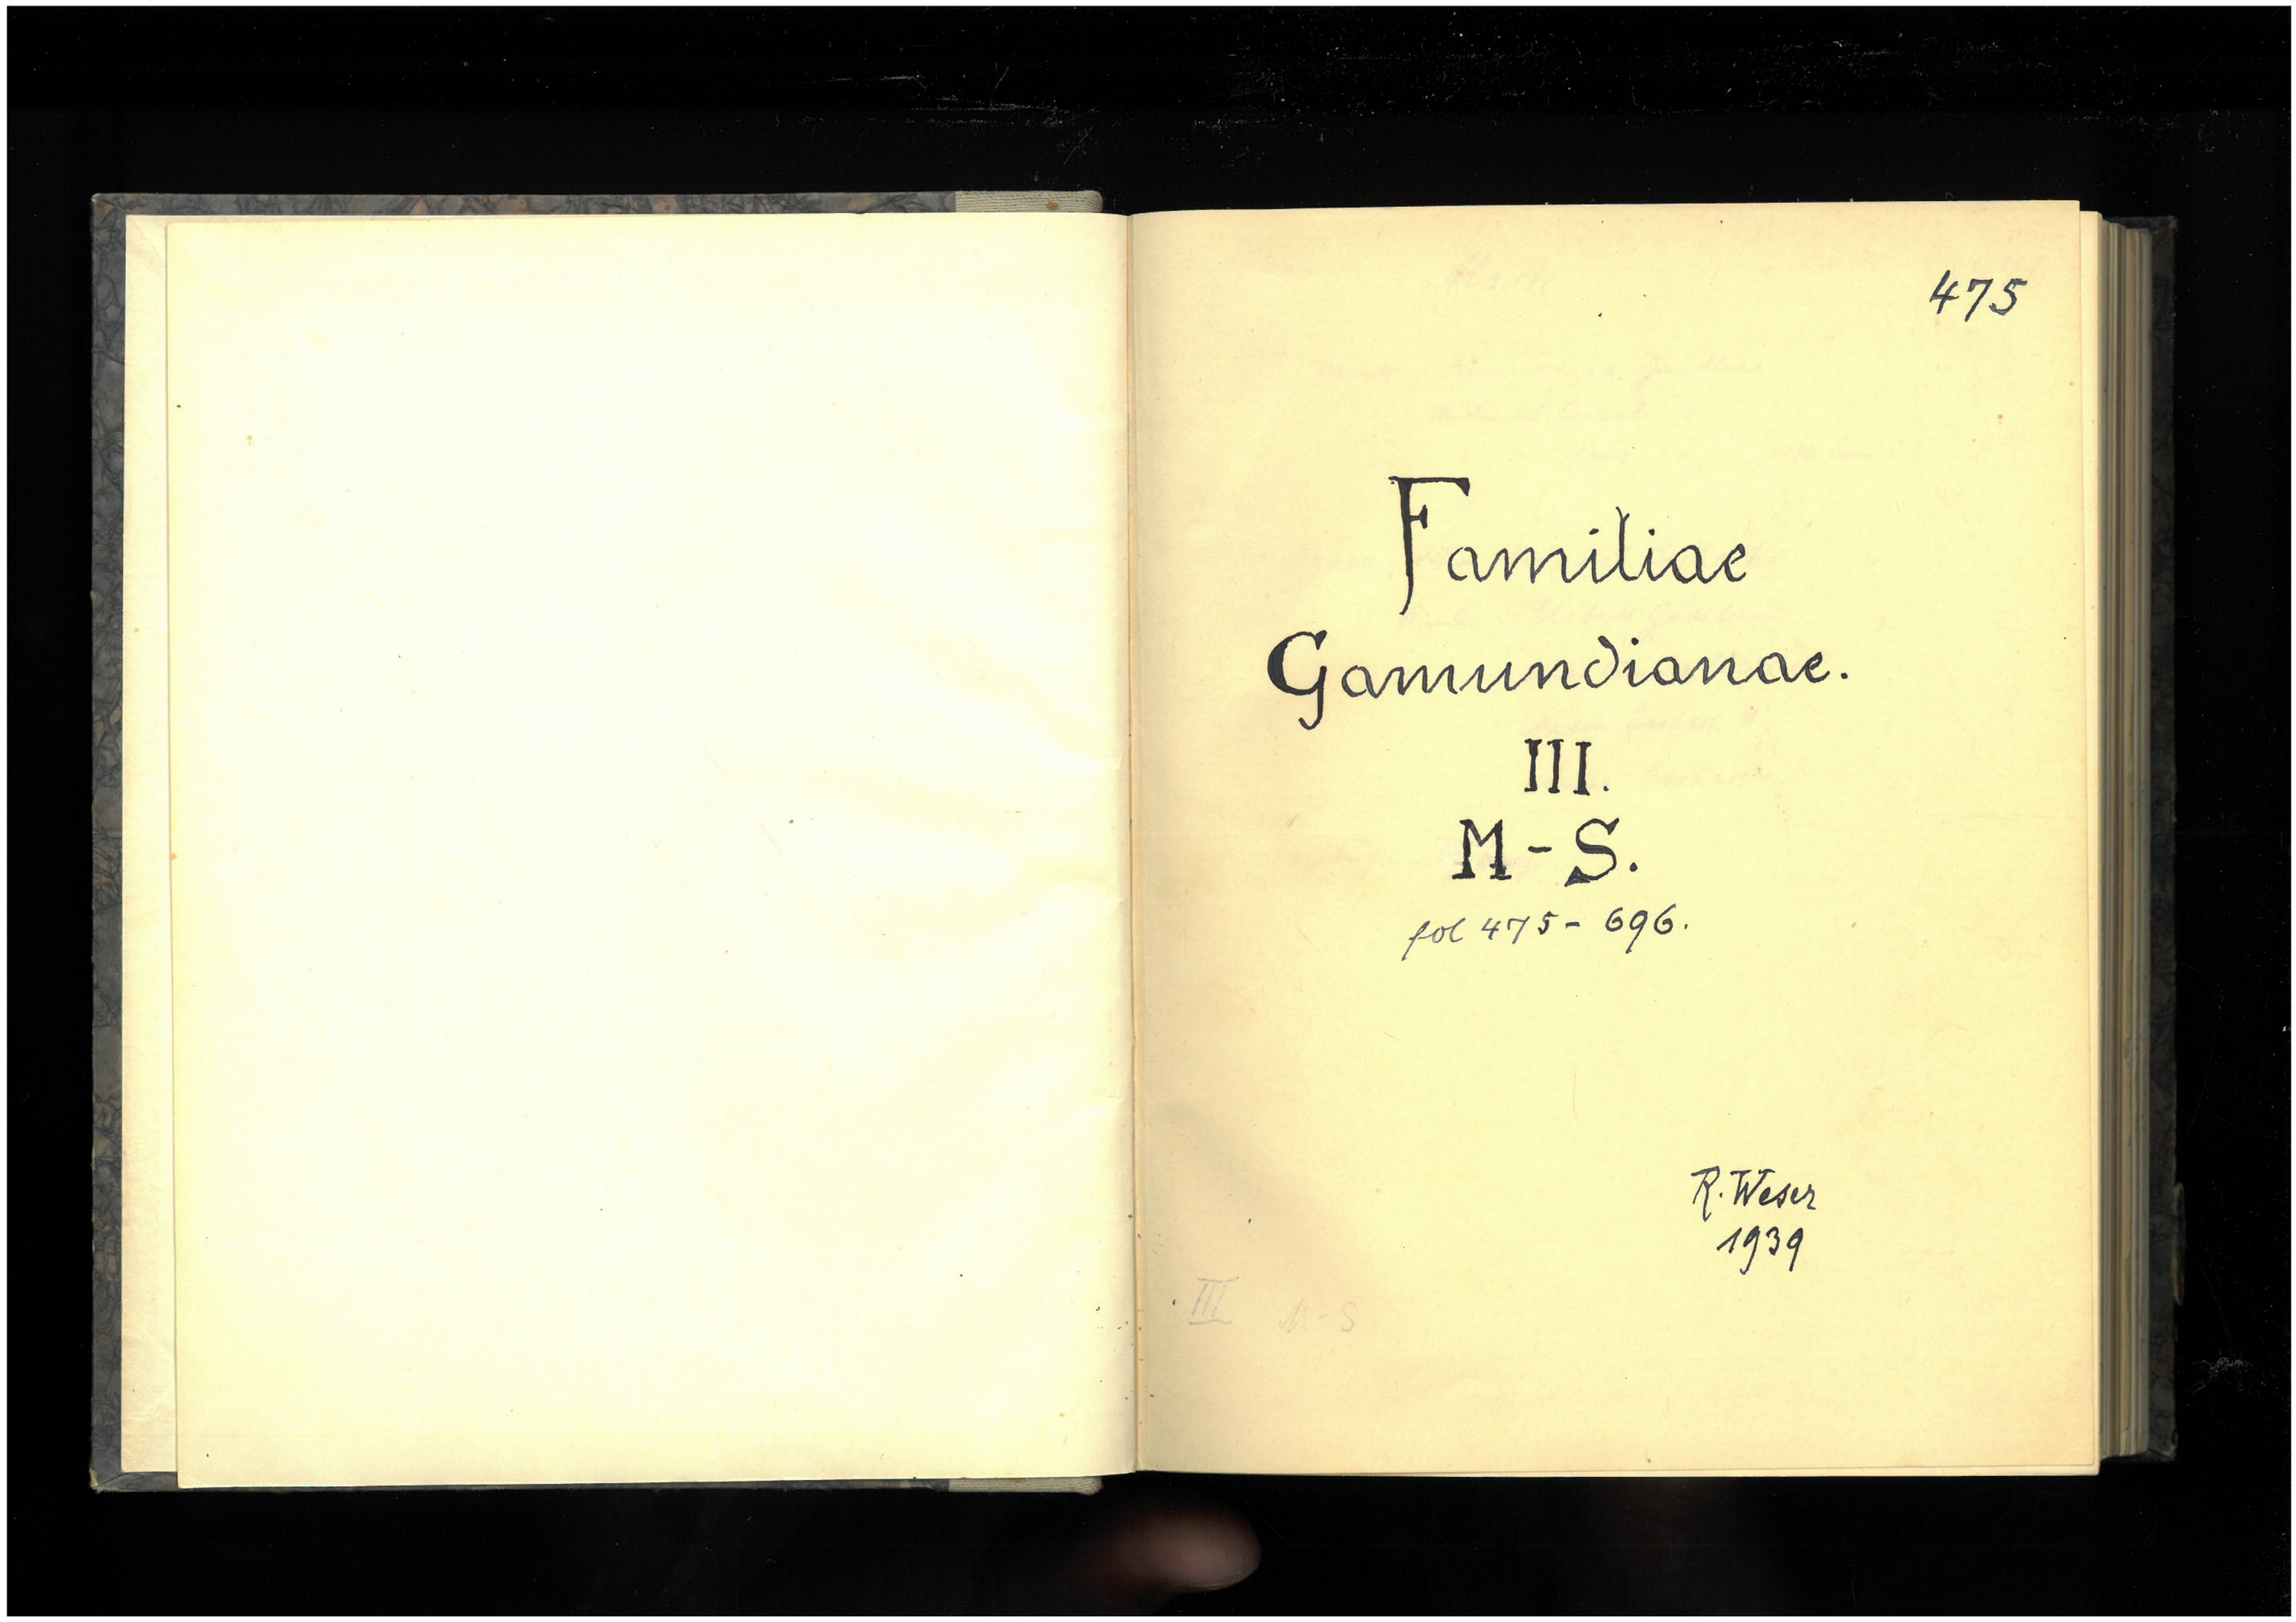 475
Familiae
Gamundianae.
III.
M-S.
fol 475-696.
R. Weser
1939
III M-S